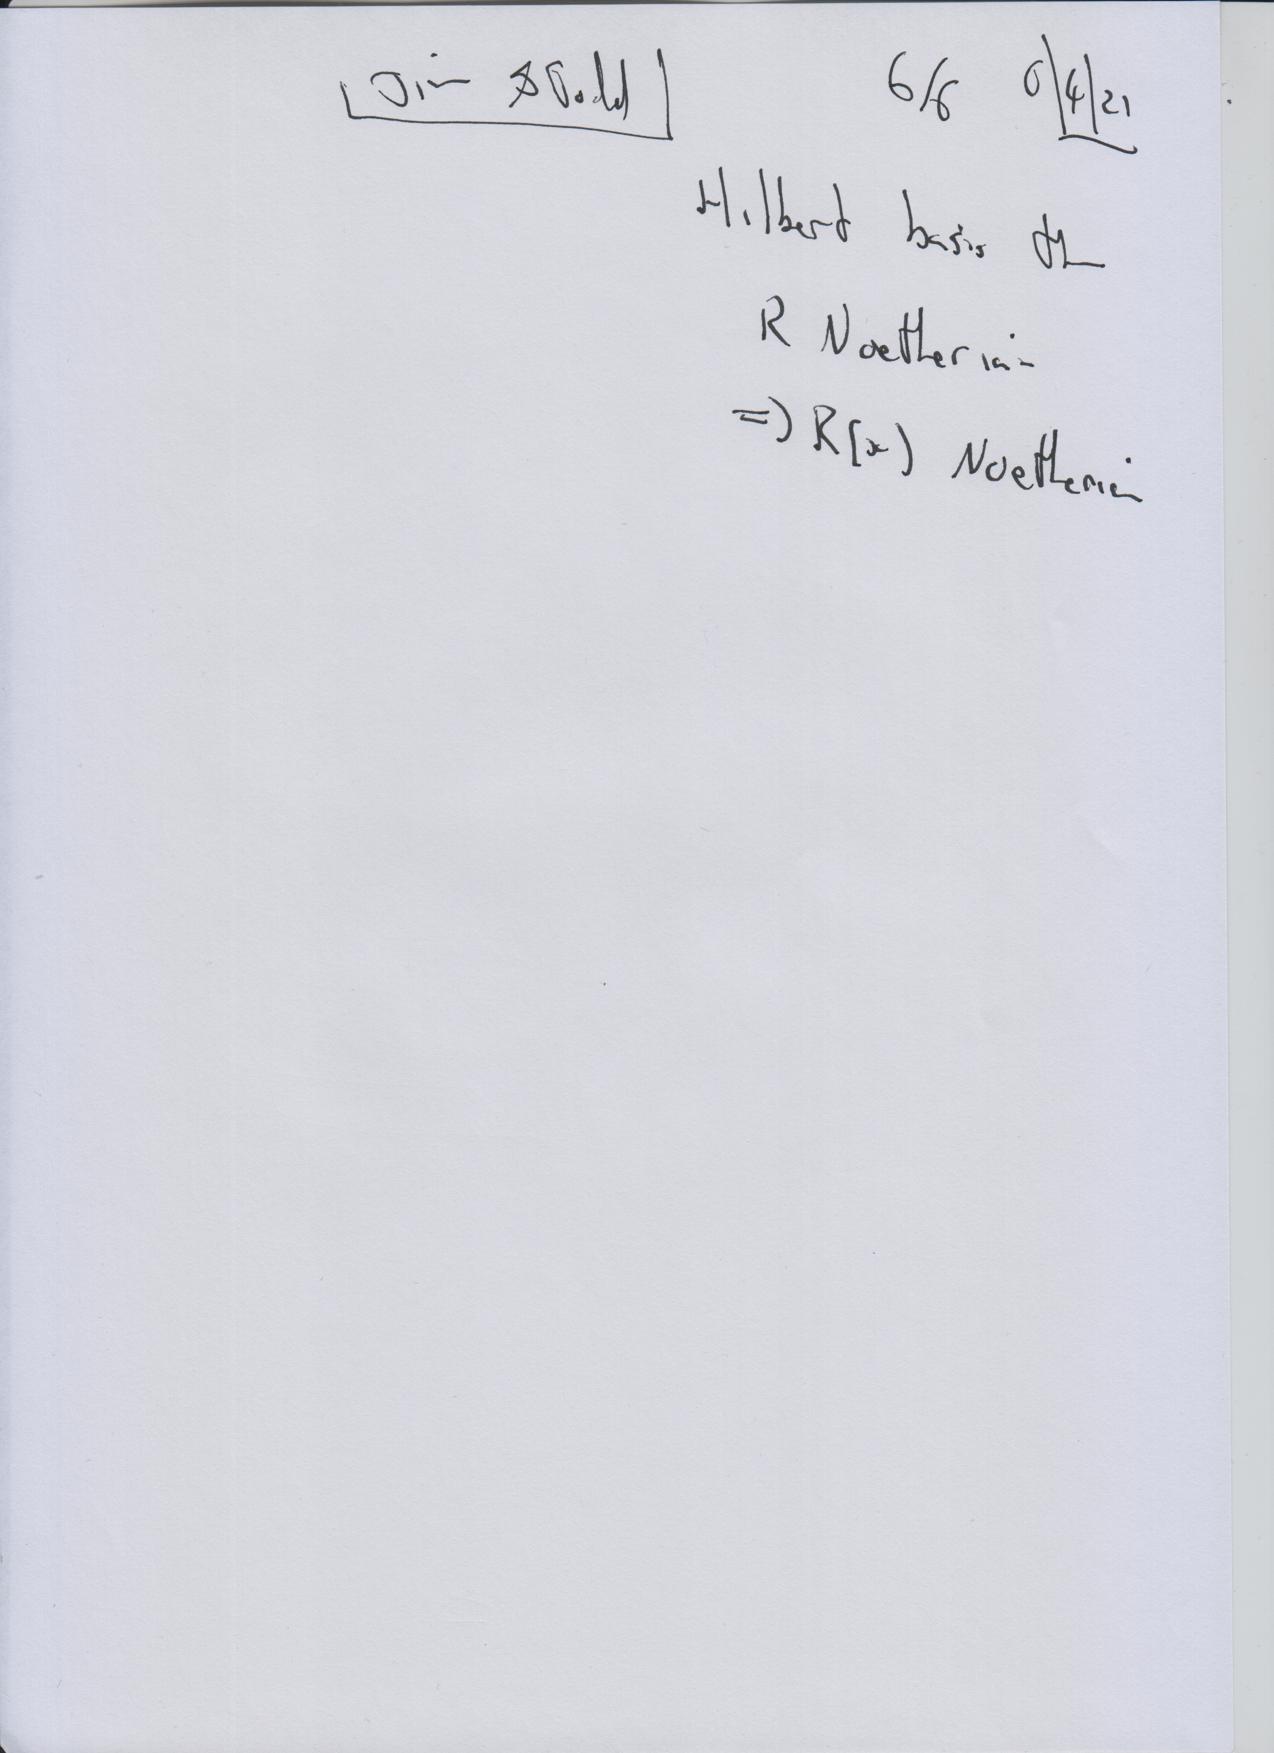 6/6 6/4/21
Hilbert basis th
R Noetherian
=> R[x] Noetherian